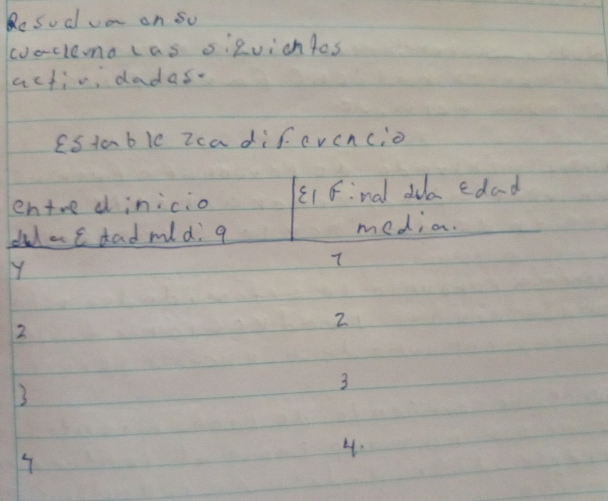 Resuelva en su
cuaderno las siguientes
actividades.
Establezca diferencia
entre el inicio
de la Edad media
El Final de la Edad
media.
1 1
2 2
3 3
4 4.